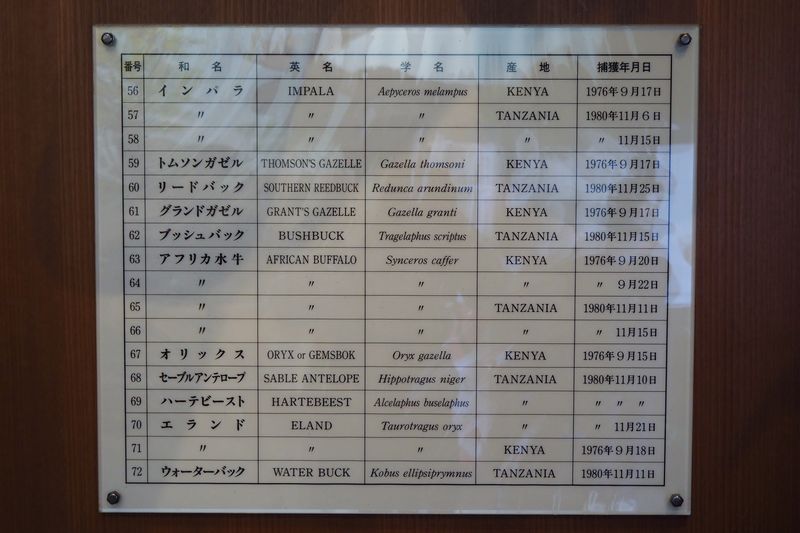 番号 和名 英名 学名 産地 捕獲年月日
56 インパラ IMPALA Aepyceros melampus KENYA 1976年9月17日
57 〃 〃 〃 TANZANIA 1980年11月6日
58 〃 〃 〃 〃 〃 11月15日
59 トムソンガゼル THOMSON'S GAZELLE Gazella thomsoni KENYA 1976年9月17日
60 リードバック SOUTHERN REEDBUCK Redunca arundinum TANZANIA 1980年11月25日
61 グランドガゼル GRANT'S GAZELLE Gazella granti KENYA 1976年9月17日
62 ブッシュバック BUSHBUCK Tragelaphus scriptus TANZANIA 1980年11月15日
63 アフリカ水牛 AFRICAN BUFFALO Synceros caffer KENYA 1976年9月20日
64 〃 〃 〃 〃 〃 9月22日
65 〃 〃 〃 TANZANIA 1980年11月11日
66 〃 〃 〃 〃 〃 11月15日
67 オリックス ORYX or GEMSBOK Oryx gazella KENYA 1976年9月15日
68 セーブルアンテロープ SABLE ANTELOPE Hippotragus niger TANZANIA 1980年11月10日
69 ハーテビースト HARTEBEEST Alcelaphus buselaphus 〃 〃 〃 〃
70 エランド ELAND Taurotragus oryx 〃 〃 11月21日
71 〃 〃 〃 KENYA 1976年9月18日
72 ウォーターバック WATER BUCK Kobus ellipsiprymnus TANZANIA 1980年11月11日